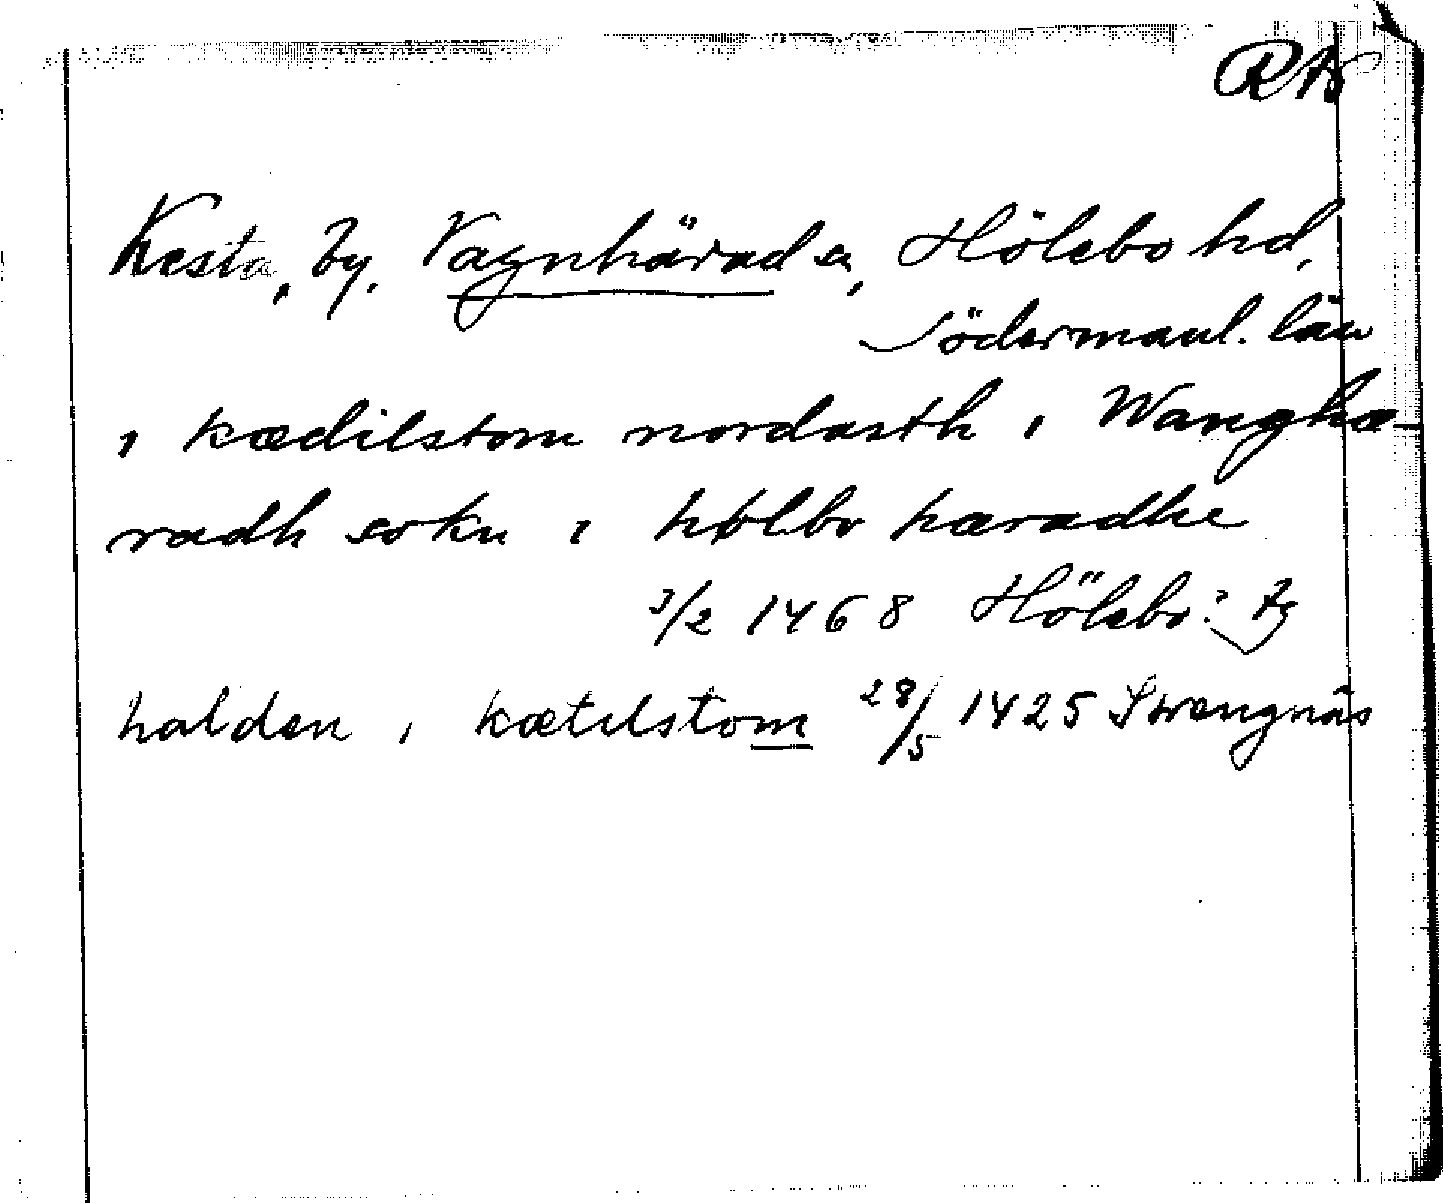 RA
Kesta, by, Vagnhärad sn, Hölebo hd,
Södermanl. län
ı kædilstom nordasth ı Wanghæ-
radh sokn ı hølbo hæradhe
3/2 1468 Hölebo:
halden ı kætilstom 28/5 1425 Strengnäs